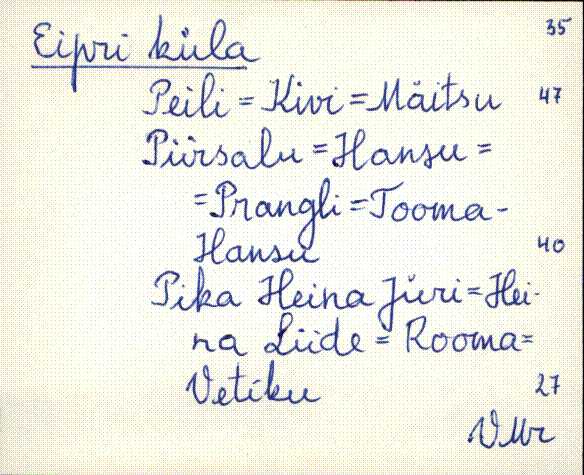 35
Eipri küla
Peili = Kivi = Mäitsu 47
Piirsalu = Hansu =
= Prangli = Tooma-
Hansu 40
Pika Heina Jüri = Hei-
na Liide = Rooma =
Vetiku 27
VMr